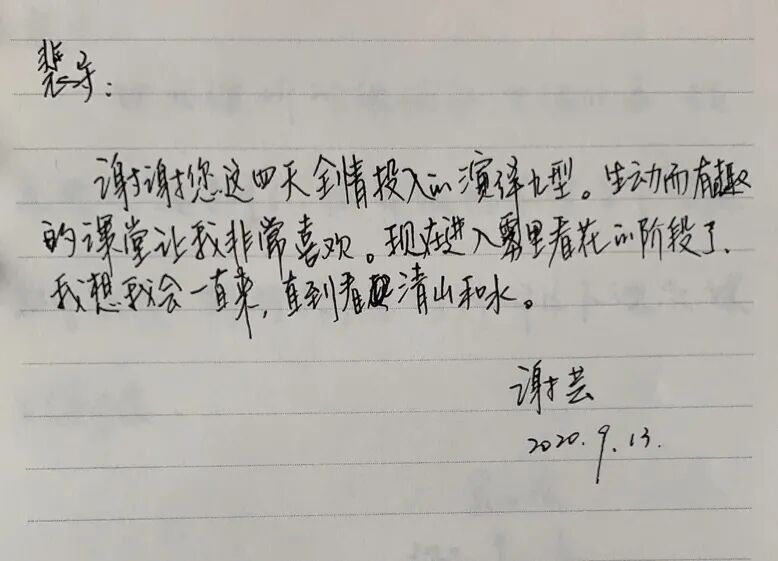 裴宇：
谢谢您这四天全情投入的演绎九型。生动而有趣
的课堂让我非常喜欢。现在进入雾里看花的阶段了.
我想我会一直来，直到看清山和水。
谢芸
2020.9.13.